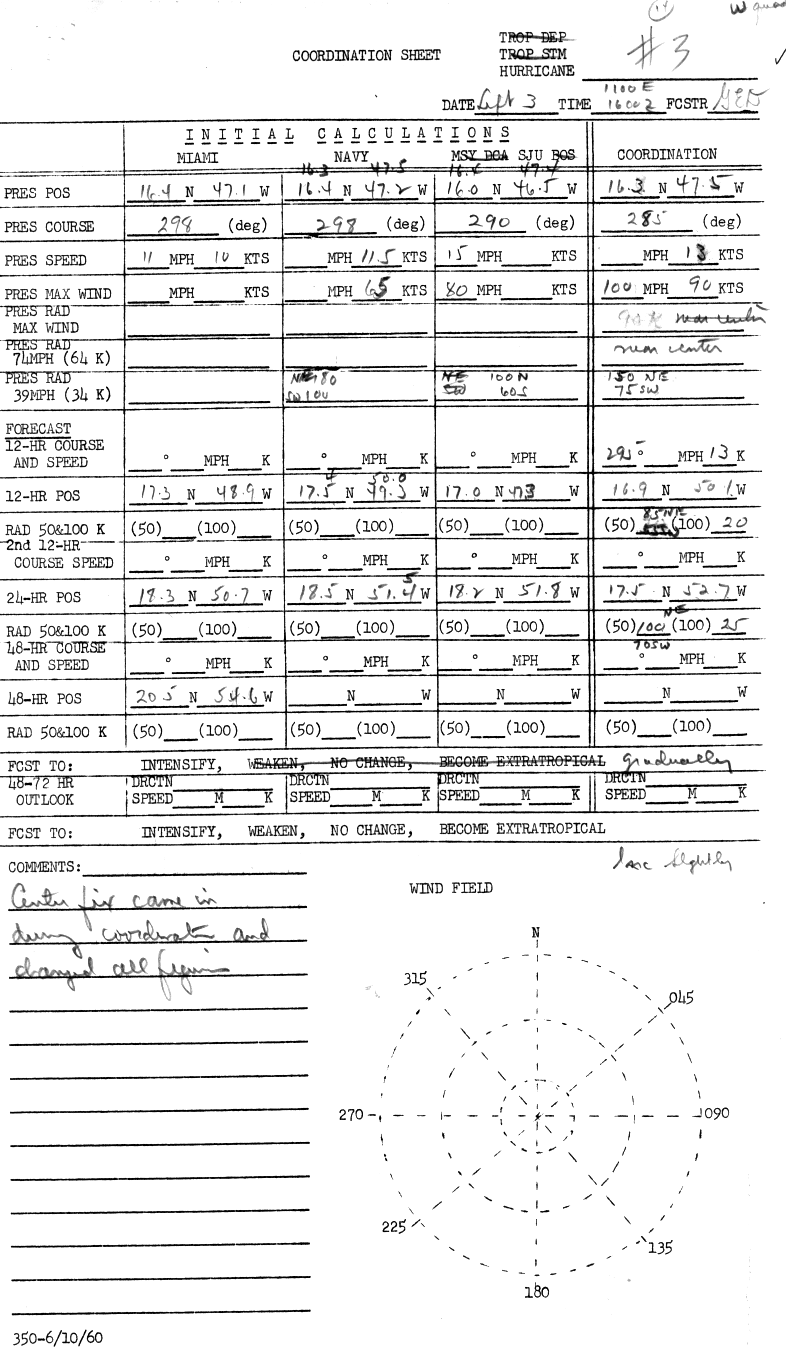 14 W quad
TROP DEP
COORDINATION SHEET TROP STM #3
HURRICANE
1100 E
DATE Sept 3 TIME 1600Z FCSTR GED
INITIAL CALCULATIONS
MIAMI NAVY MSY DCA SJU BOS COORDINATION
16.3 47.5 16.4 47.4
PRES POS 16.4 N 47.1 W 16.4 N 47.2 W 16.0 N 46.5 W 16.3 N 47.5 W
PRES COURSE 298 (deg) 298 (deg) 290 (deg) 285 (deg)
PRES SPEED 11 MPH 10 KTS MPH 11.5 KTS 15 MPH KTS MPH 13 KTS
PRES MAX WIND MPH KTS MPH 65 KTS 80 MPH KTS 100 MPH 90 KTS
PRES RAD
MAX WIND near center
PRES RAD
74MPH (64 K) near center
PRES RAD NE 180 NE 100N 150 NE
39MPH (34 K) SW 100 SW 60S 75 SW
FORECAST
12-HR COURSE
AND SPEED ° MPH K ° MPH K ° MPH K 295° MPH 13 K
4 50.0
12-HR POS 17.3 N 48.9 W 17.5 N 49.3 W 17.0 N 473 W 16.9 N 50.1 W
85 NE
RAD 50&100 K (50) (100) (50) (100) (50) (100) (50) (100) 20
2nd 12-HR
COURSE SPEED ° MPH K ° MPH K ° MPH K ° MPH K
5
24-HR POS 18.3 N 50.7 W 18.5 N 51.4 W 18.2 N 51.8 W 17.5 N 52.7 W
NE
RAD 50&100 K (50) (100) (50) (100) (50) (100) (50) 100 (100) 25
48-HR COURSE 70SW
AND SPEED ° MPH K ° MPH K ° MPH K ° MPH K
48-HR POS 20.5 N 54.6 W N W N W N W
RAD 50&100 K (50) (100) (50) (100) (50) (100) (50) (100)
FCST TO: INTENSIFY, WEAKEN, NO CHANGE, BECOME EXTRATROPICAL gradually
48-72 HR DRCTN DRCTN DRCTN DRCTN
OUTLOOK SPEED M K SPEED M K SPEED M K SPEED M K
FCST TO: INTENSIFY, WEAKEN, NO CHANGE, BECOME EXTRATROPICAL
COMMENTS: inc slightly
WIND FIELD
Center fix came in
during coordination and
changed all figures
N
315
045
270
090
225
135
180
350-6/10/60